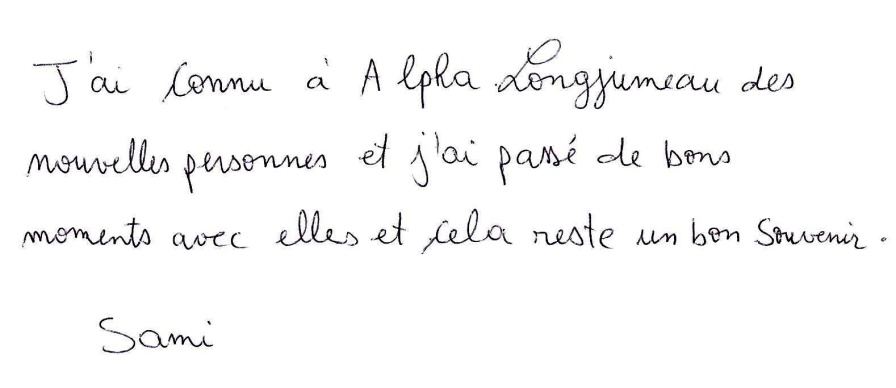 J'ai connu à Alpha Longjumeau des
nouvelles personnes et j'ai passé de bons
moments avec elles et cela reste un bon souvenir.
Sami